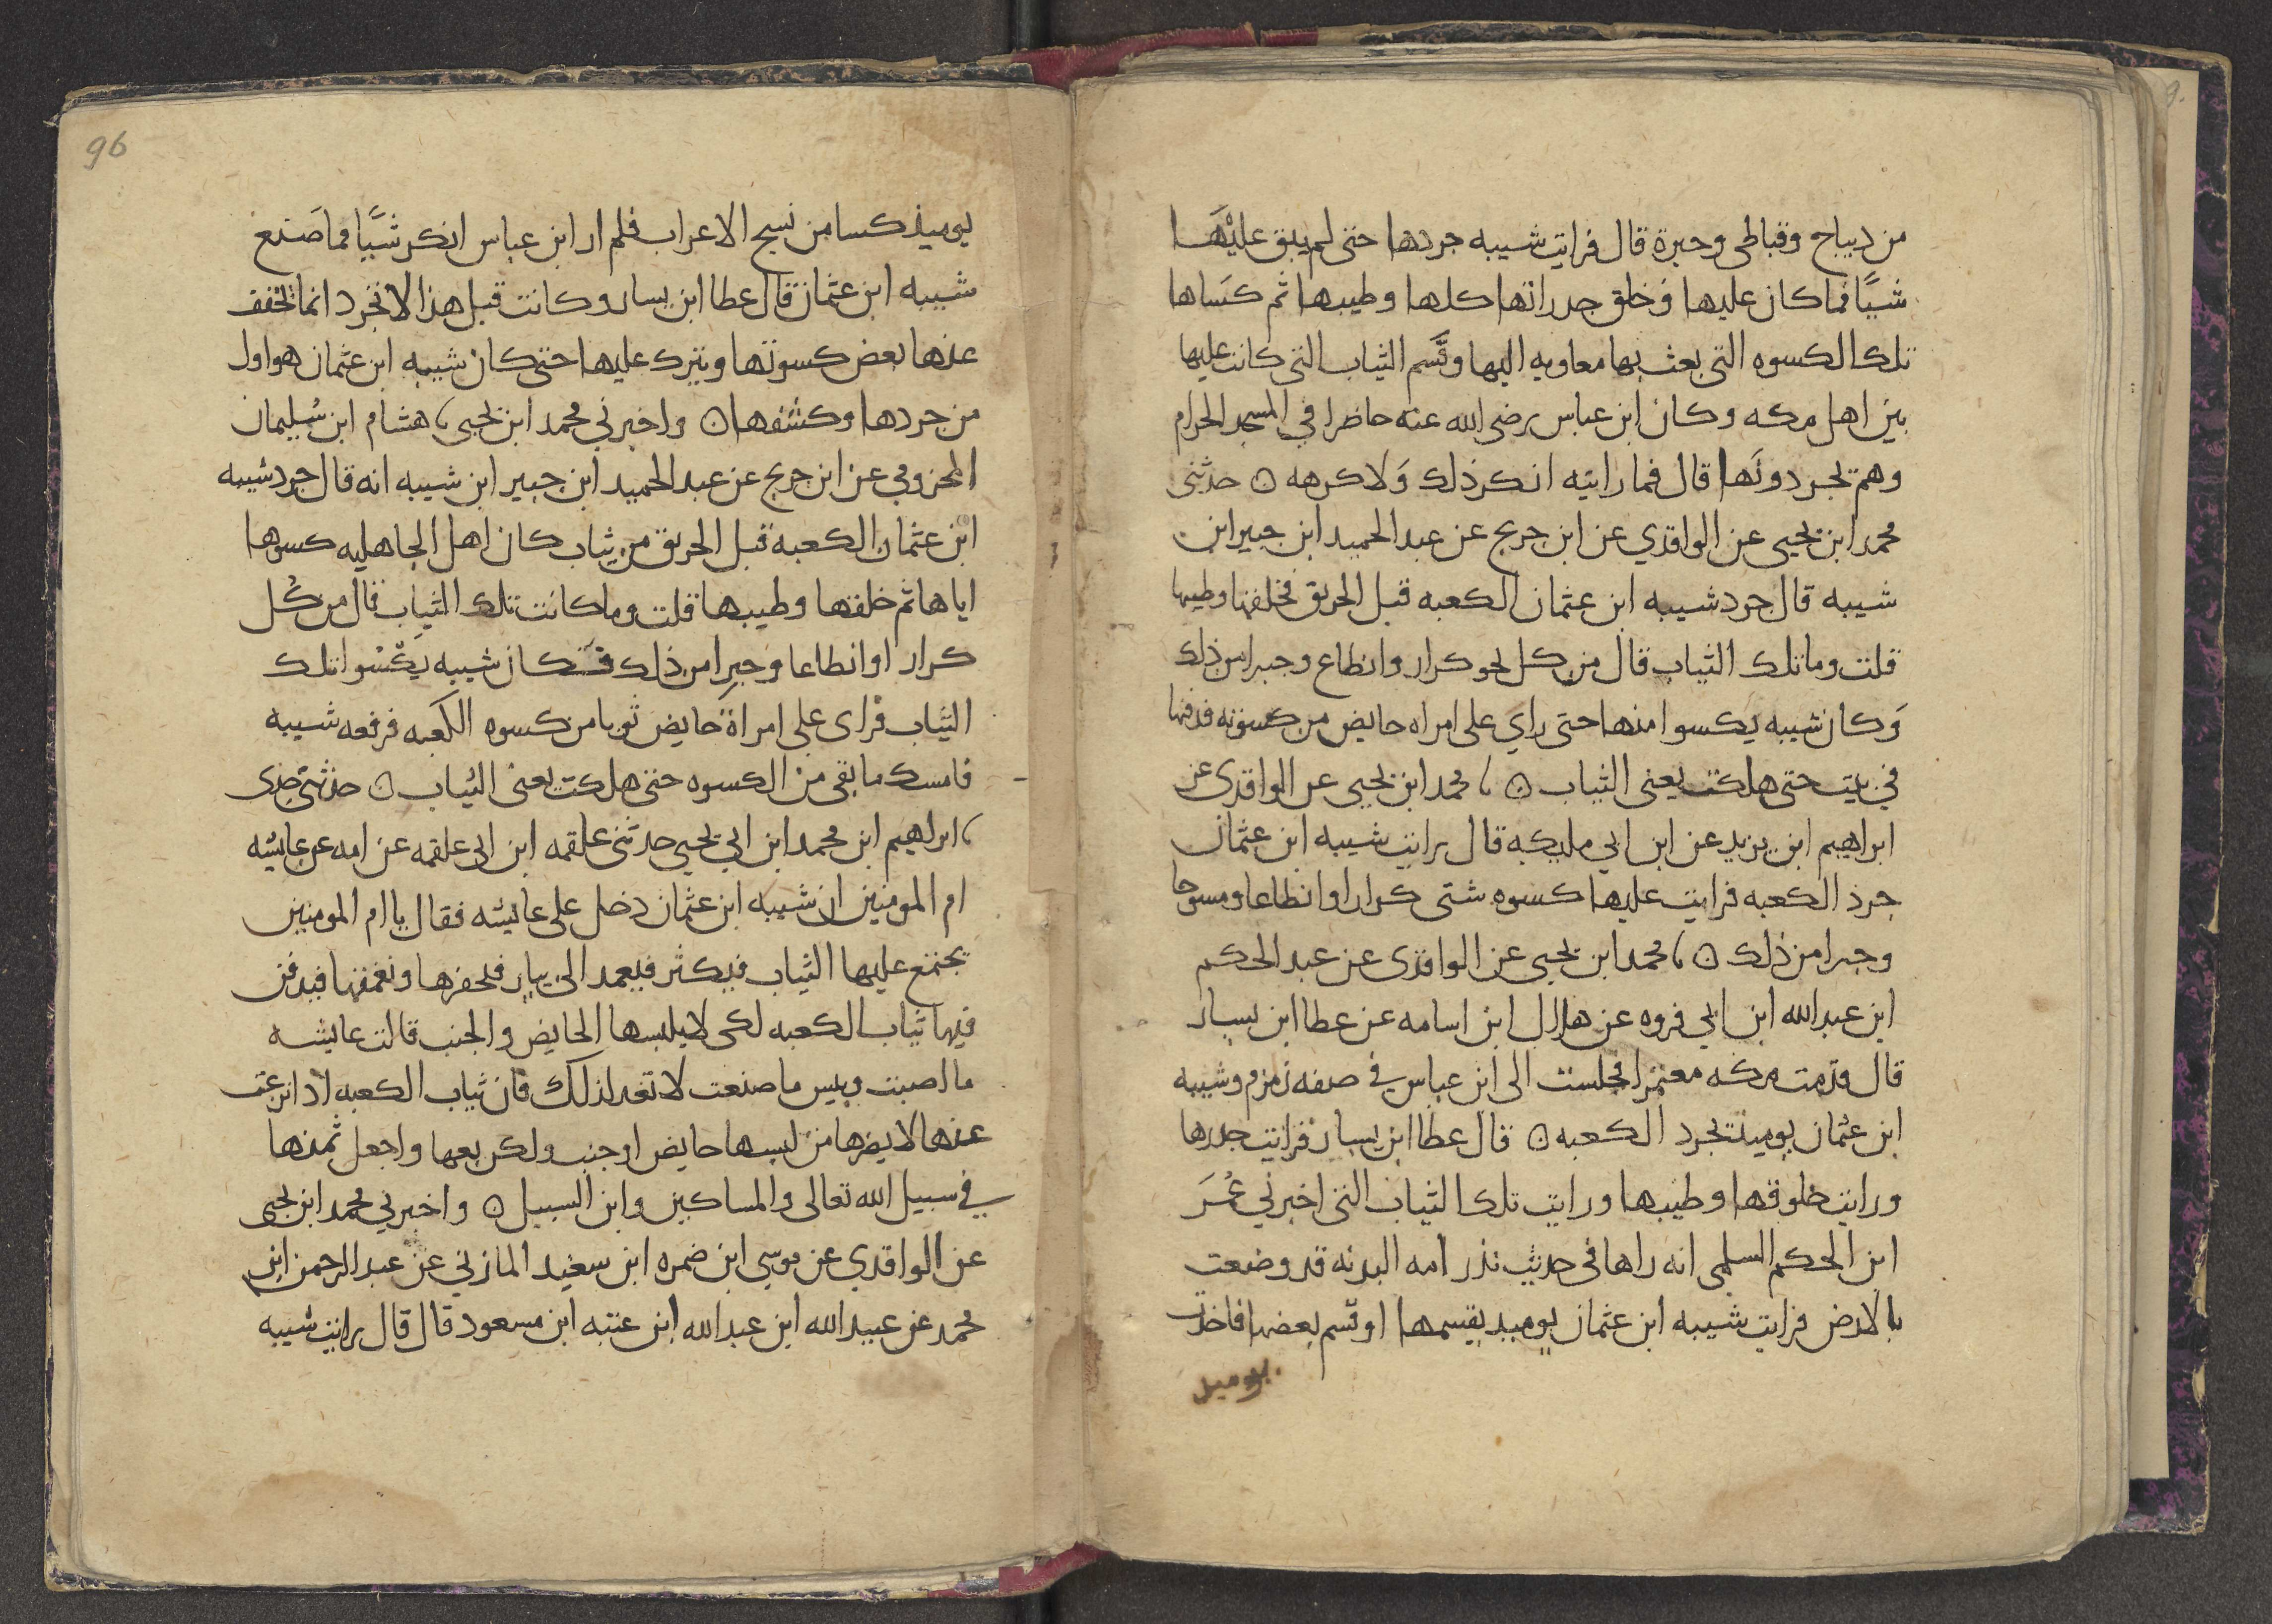 من ديباج وقباطى وحبرة قال فرايت شيبه جردها حتى لم يبق عليها
شيًا مما كان عليها وخلق جدرانها كلها وطيبها ثم كساها
تلك الكسوه التى بعث بها معاويه اليها وقسم الثياب التى كانت عليها
بين اهل مكه وكان ابن عباس رضى الله عنه حاضرا في المسجد الحرام
وهم يجردونها قال فما رايته انكر ذلك ولا كرهه ن حدثنى
محمد ابن يحيى عن الواقدي عن ابن جريج عن عبد الحميد ابن جبير ابن
شيبه قال جرد شيبه ابن عثمان الكعبه قبل الحريق فخلقها وطيبها
قلت وما تلك الثياب قال من كل نحو كرار وانطاع وحبرا من ذلك
وكان شيبه يكسوا منها حتى راي على امراه حايض من كسوته فدفنها
في بيت حتى هلكت يعنى الثياب ن محمد ابن يحيى عن الواقدى عن
ابراهيم ابن يزيد عن ابن ابي مليكه قال رايت شيبه ابن عثمان
جرد الكعبه فرايت عليها كسوه شتى كرارا وانطاعا ومسوحا
وحبرا من ذلك ن محمد ابن يحيى عن الواقدى عن عبد الحكم
ابن عبد الله ابن ابي فروه عن هلال ابن اسامه عن عطا ابن يسار
قال قدمت مكه معتمرا فجلست الى ابن عباس في صفه زمزم وشيبه
ابن عثمان يوميذ يجرد الكعبه ن قال عطا ابن يسار فرايت جدرها
ورايت خلوقها وطيبها ورايت تلك الثياب التى اخبرني عمر
ابن الحكم السلمى انه راها فى حديث نذر امه البدنه قد وضعت
بالارض فرايت شيبه ابن عثمان يوميد يقسمها او قسم بعضها فاخذت
يوميذ
96
يوميذ كسا من نسج الاعراب فلم ار ابن عباس انكر شيًا مما صنع
شيبه ابن عثمان قال عطا ابن يسار وكانت قبل هذا لا تجرد انما تخفف
عنها بعض كسوتها وتترك عليها حتى كان شيبه ابن عثمان هو اول
من جردها وكشفها ن واخبرني محمد ابن يحيى هشام ابن سليمان
المخزومي عن ابن جريج عن عبد الحميد ابن جبير ابن شيبه انه قال جرد شيبه
ابن عثمان الكعبه قبل الحريق من ثياب كان اهل الجاهليه كسوها
اياها ثم خلقها وطيبها قلت وما كانت تلك الثياب قال من كل
كرار او انطاعا وحبرا من ذلك فكان شيبه يكسوا تلك
الثياب فراى على امراة حايض ثوبا من كسوه الكعبه فرفعه شيبه
فامسك ما بقى من الكسوه حتى هلكت يعنى الثياب ن حدثني جدى
ابراهيم ابن محمد ابن ابي يحيى حدثنى علقمه ابن ابي علقمه عن امه عن عايشه
ام المومنين ان شيبه ابن عثمان دخل على عايشه فقال يا ام المومنين
تجتمع عليها الثياب فيكثر فيعمد الى بيار فلحفرها ونغمقها فيدفن
فيها ثياب الكعبه لكى لا يلبسها الحايض والجنب قالت عايشه
ما اصبت وبيس ما صنعت لا تعد لذلك فان ثياب الكعبه اذا نزعت
عنها لا يضرها من لبسها حايض او جنب ولكن بعها واجعل ثمنها
في سبيل الله تعالى والمساكين وابن السبيل ن واخبرني محمد ابن يحيى
عن الواقدي عن موسى ابن ضمره ابن سعيد المازني عن عبد الرحمن ابن
محمد عن عبيد الله ابن عبد الله ابن عتبه ابن مسعود قال قال رايت شيبه